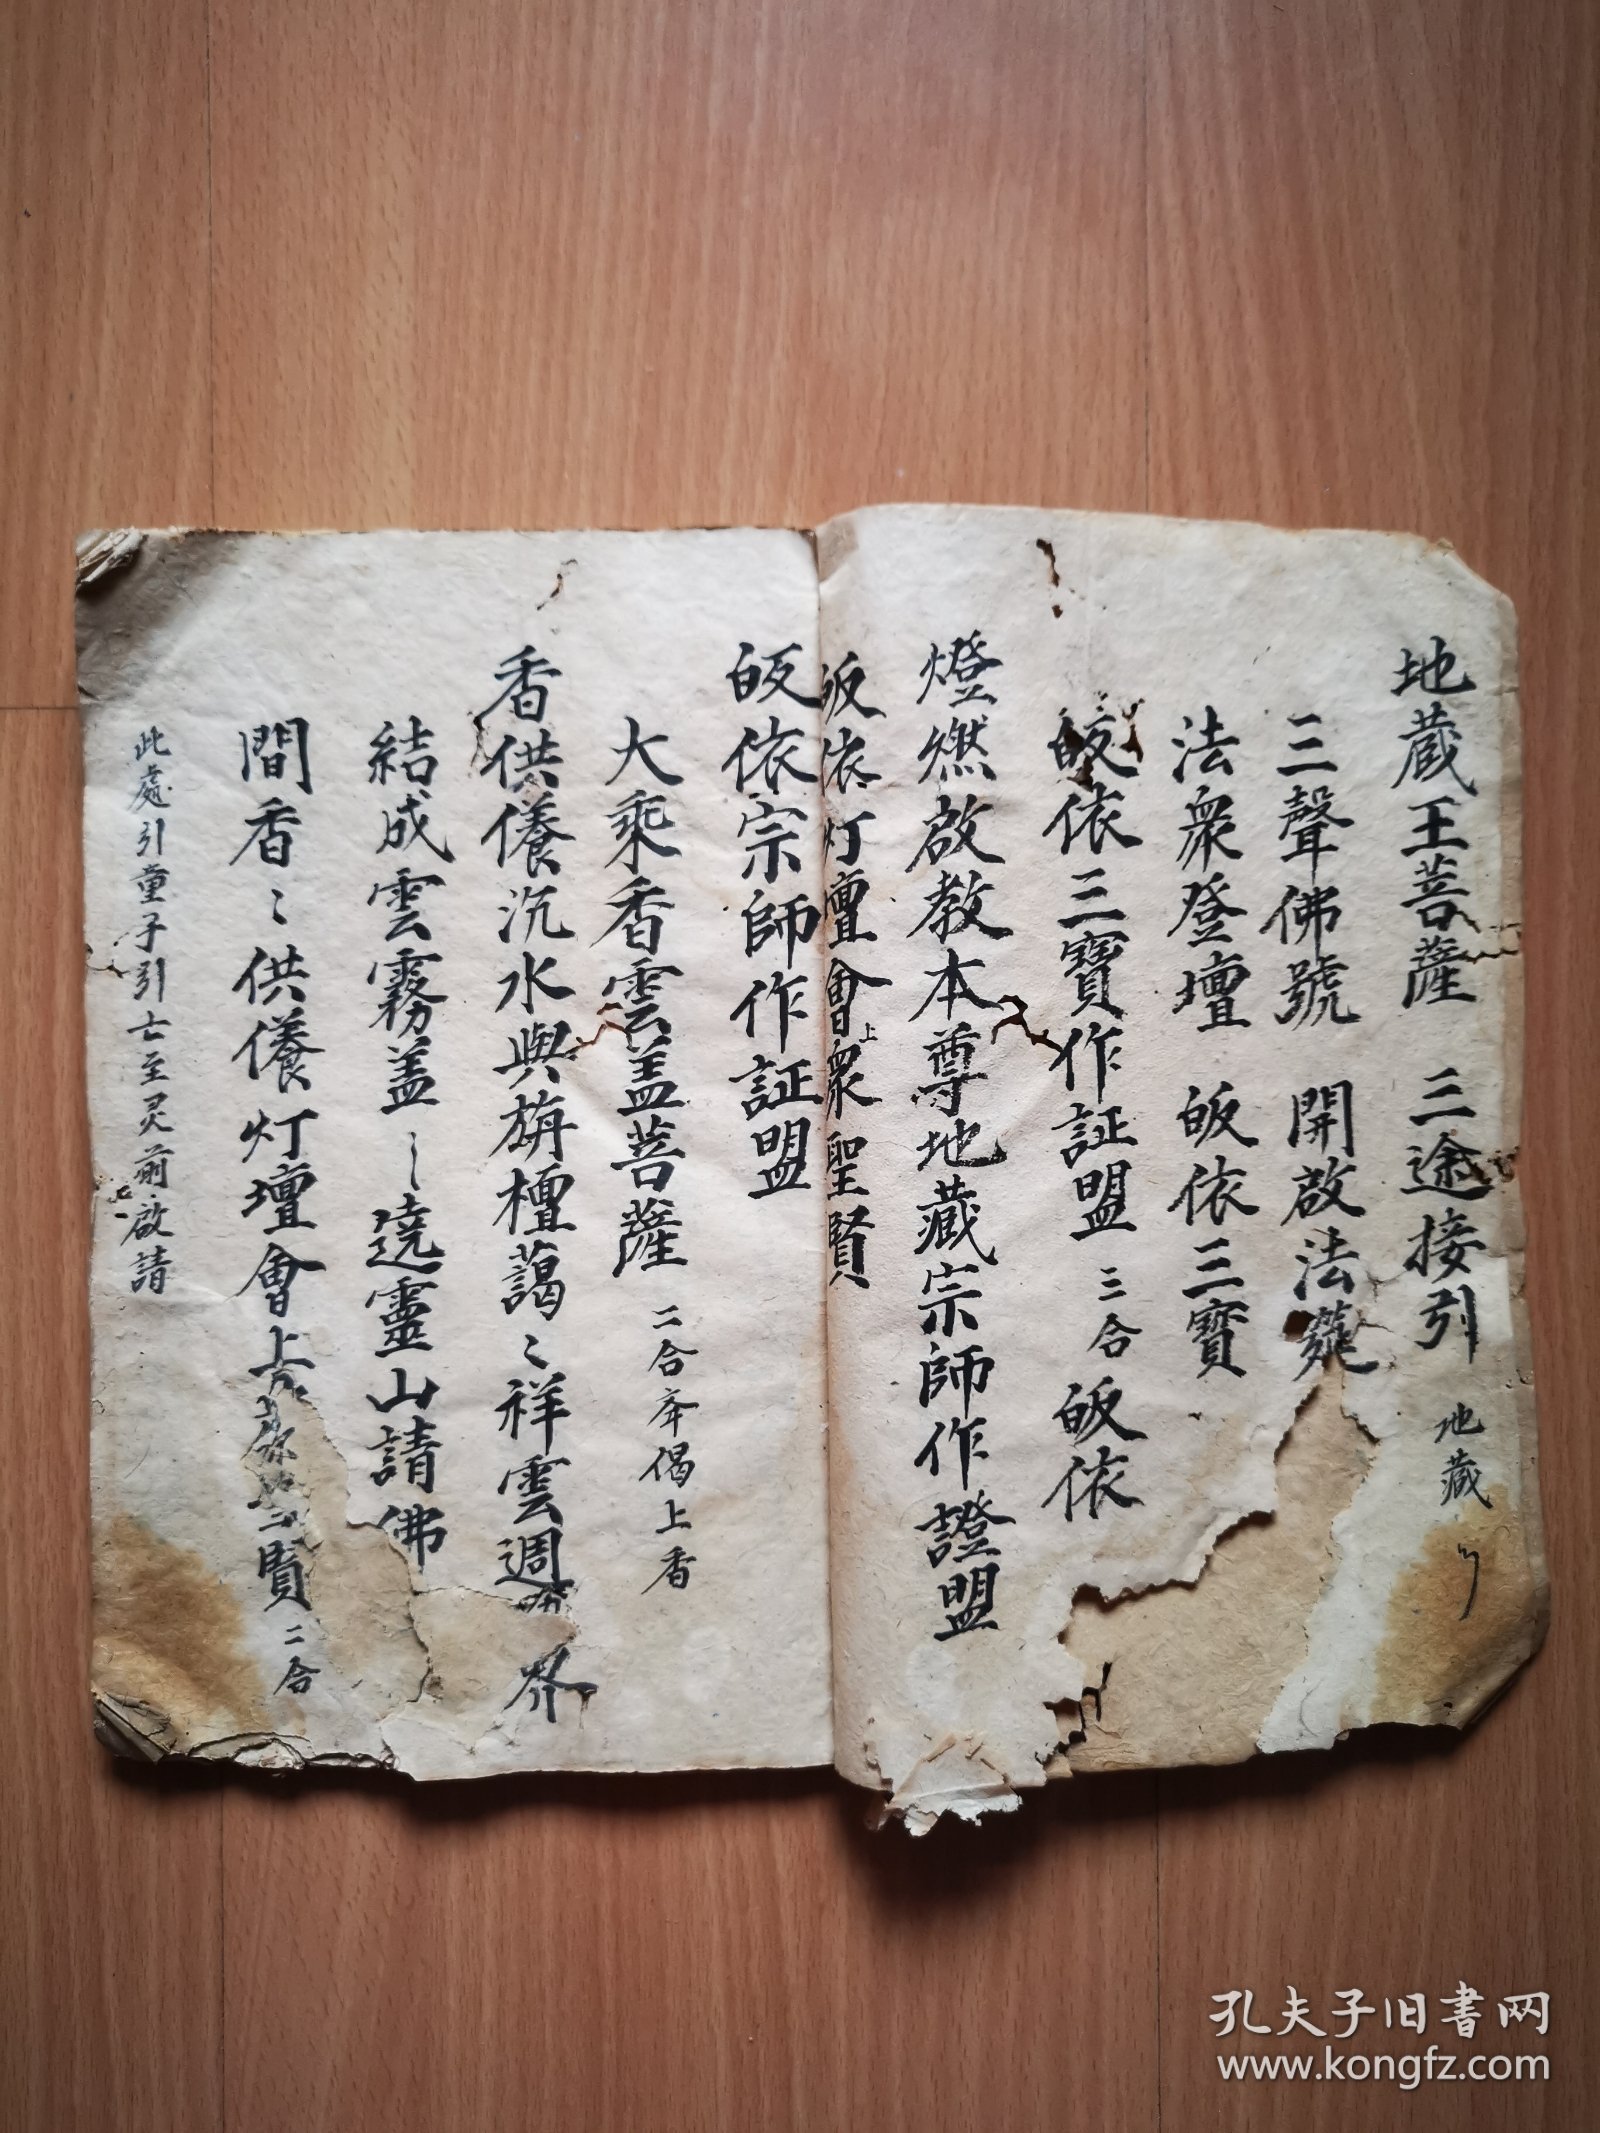 地藏王菩薩 三途接引 地藏
三聲佛號 開啟法筵
法眾登壇 皈依三寶
皈依三寶作証盟 三合 皈依
燈燃啟教本尊地藏宗師作證盟
皈依灯壇會上衆聖賢
皈依宗師作証盟
大乘香雲盖菩薩 二合 偈上香
香供養沉水與旃檀藹〻祥雲週 界
結成雲霧盖〻遶靈山請佛
間香〻供養灯壇會上 賢 二合
此處引童子引亡至灵前啟請
孔夫子旧书网
www.kongfz.com